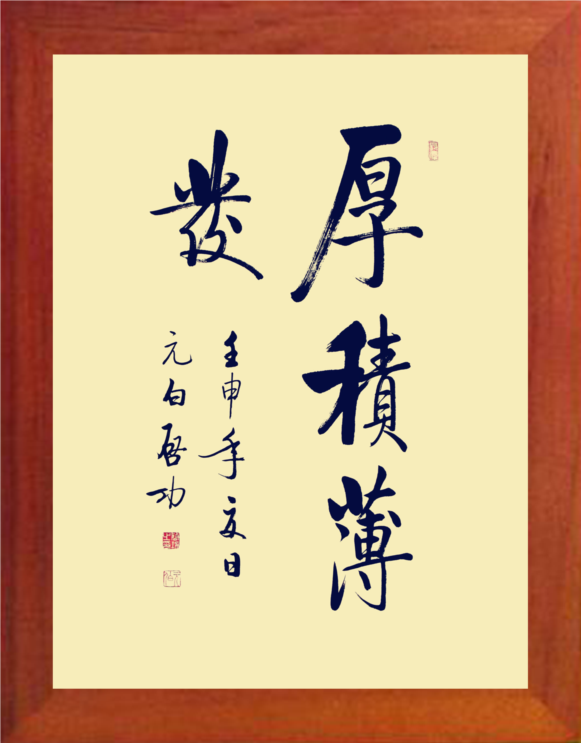 厚積薄
發
壬申年夏日
元白啟功